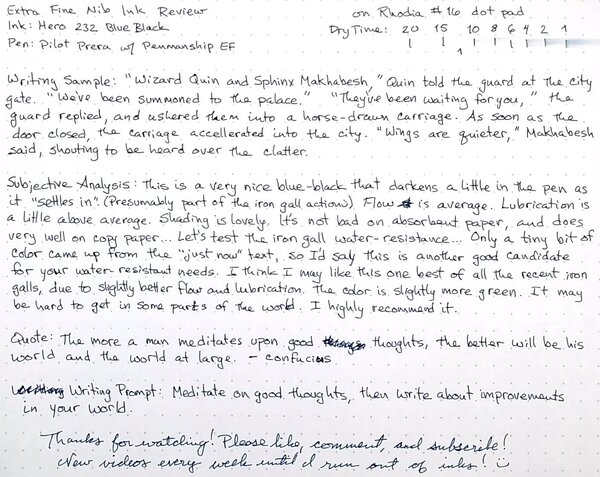 Extra Fine Nib Ink Review
on Rhodia #16 dot pad
Ink: Hero 232 Blue Black
Dry Time: 20 15 10 8 6 4 2 1
Pen: Pilot Prera w/ Penmanship EF
Writing Sample: "Wizard Quin and Sphinx Makhabesh," Quin told the guard at the city
gate. "We've been summoned to the palace." "They've been waiting for you," the
guard replied, and ushered them into a horse-drawn carriage. As soon as the
door closed, the carriage accellerated into the city. "Wings are quieter," Makhabesh
said, shouting to be heard over the clatter.
Subjective Analysis: This is a very nice blue-black that darkens a little in the pen as
it "settles in". (Presumably part of the iron gall action) Flow is average. Lubrication is
a little above average. Shading is lovely. It's not bad on absorbent paper, and does
very well on copy paper... Let's test the iron gall water-resistance... Only a tiny bit of
color came up from the "just now" text, so I'd say this is another good candidate
for your water-resistant needs. I think I may like this one best of all the recent iron
galls, due to slightly better flow and lubrication. The color is slightly more green. It may
be hard to get in some parts of the world. I highly recommend it.
Quote: The more a man meditates upon good thoughts, the better will be his
world and the world at large. - Confucius
Writing Prompt: Meditate on good thoughts, then write about improvements
in your world.
Thanks for watching! Please like, comment, and subscribe!
New videos every week until I run out of inks!